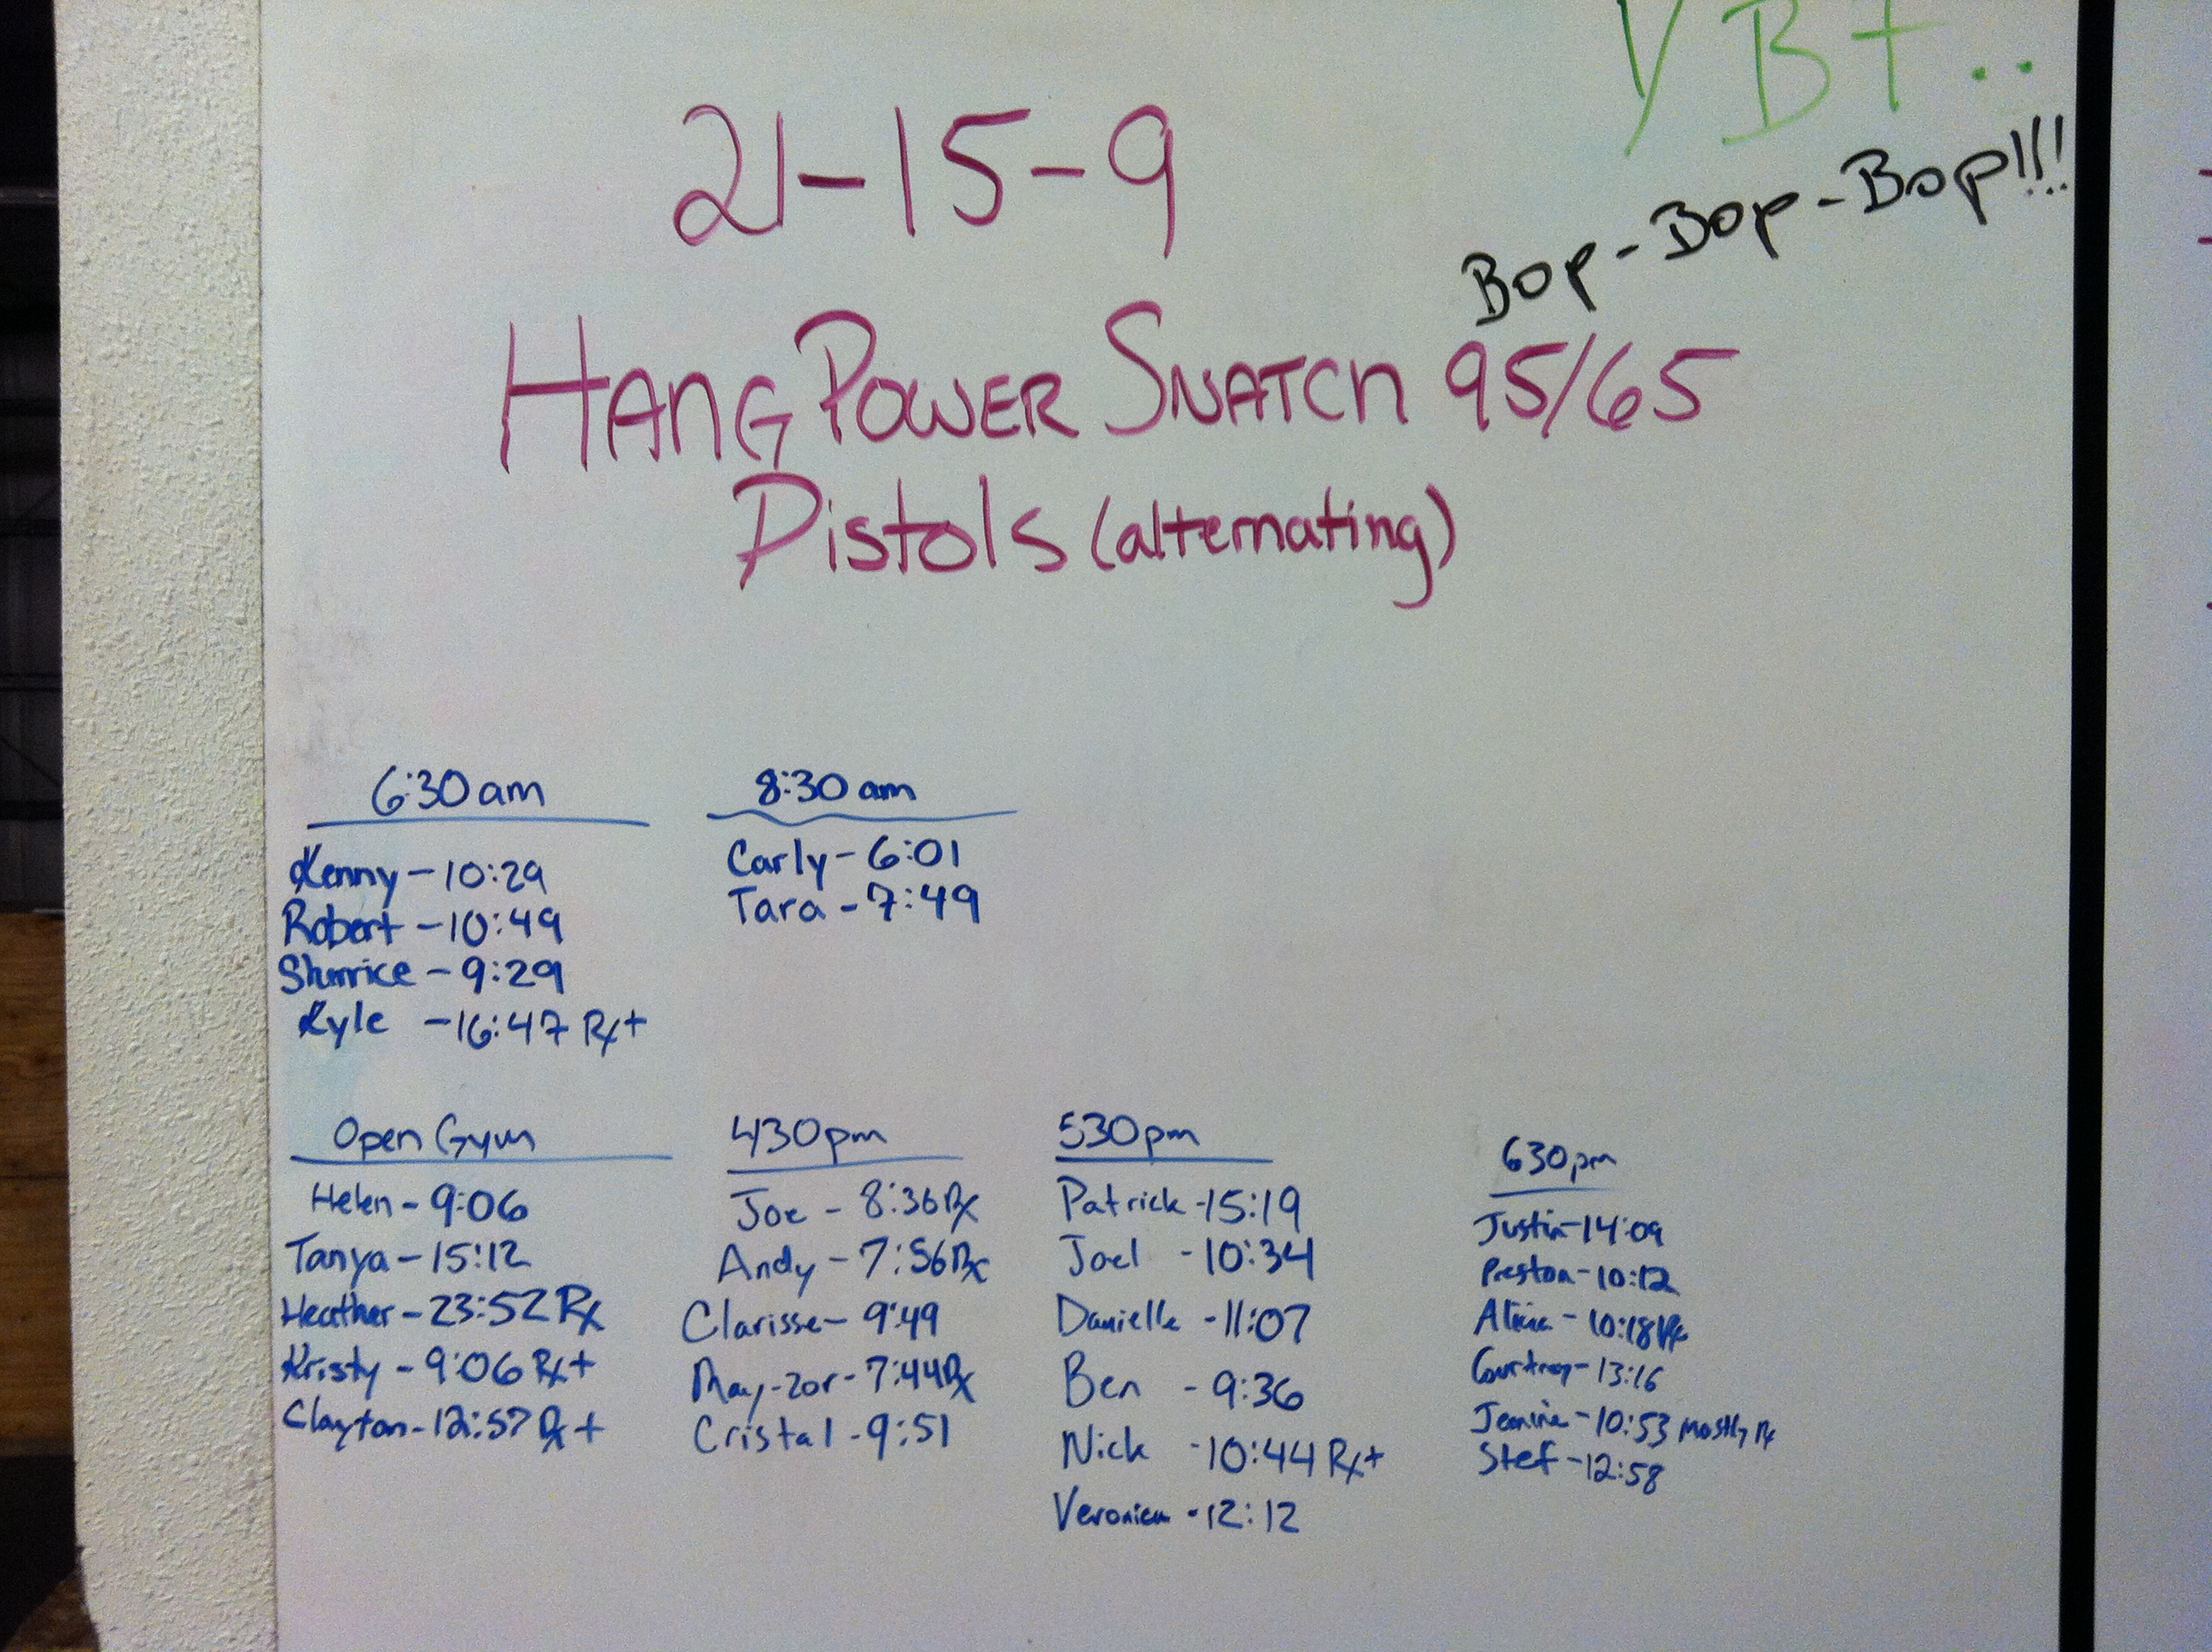 YBT..
21-15-9
Bop-Bop-Bop!!!
HANG POWER SNATCH 95/65
Pistols (alternating)
6:30am
Kenny - 10:29
Robert - 10:49
Sharrice - 9:29
Kyle - 16:47 Rx+
8:30am
Carly - 6:01
Tara - 7:49
Open Gym
Helen - 9:06
Tanya - 15:12
Heather - 23:52 Rx
Kristy - 9:06 Rx+
Clayton - 12:57 Rx+
430pm
Joe - 8:36 Rx
Andy - 7:56 Rx
Clarisse - 9:49
May-zor - 7:44 Rx
Cristal - 9:51
530pm
Patrick - 15:19
Joel - 10:34
Danielle - 11:07
Ben - 9:36
Nick - 10:44 Rx+
Veronica - 12:12
630pm
Justin - 14:09
Preston - 10:12
10:18 Rx
Courtney - 13:16
Jeanine - 10:53 mostly Rx
Stef - 12:58